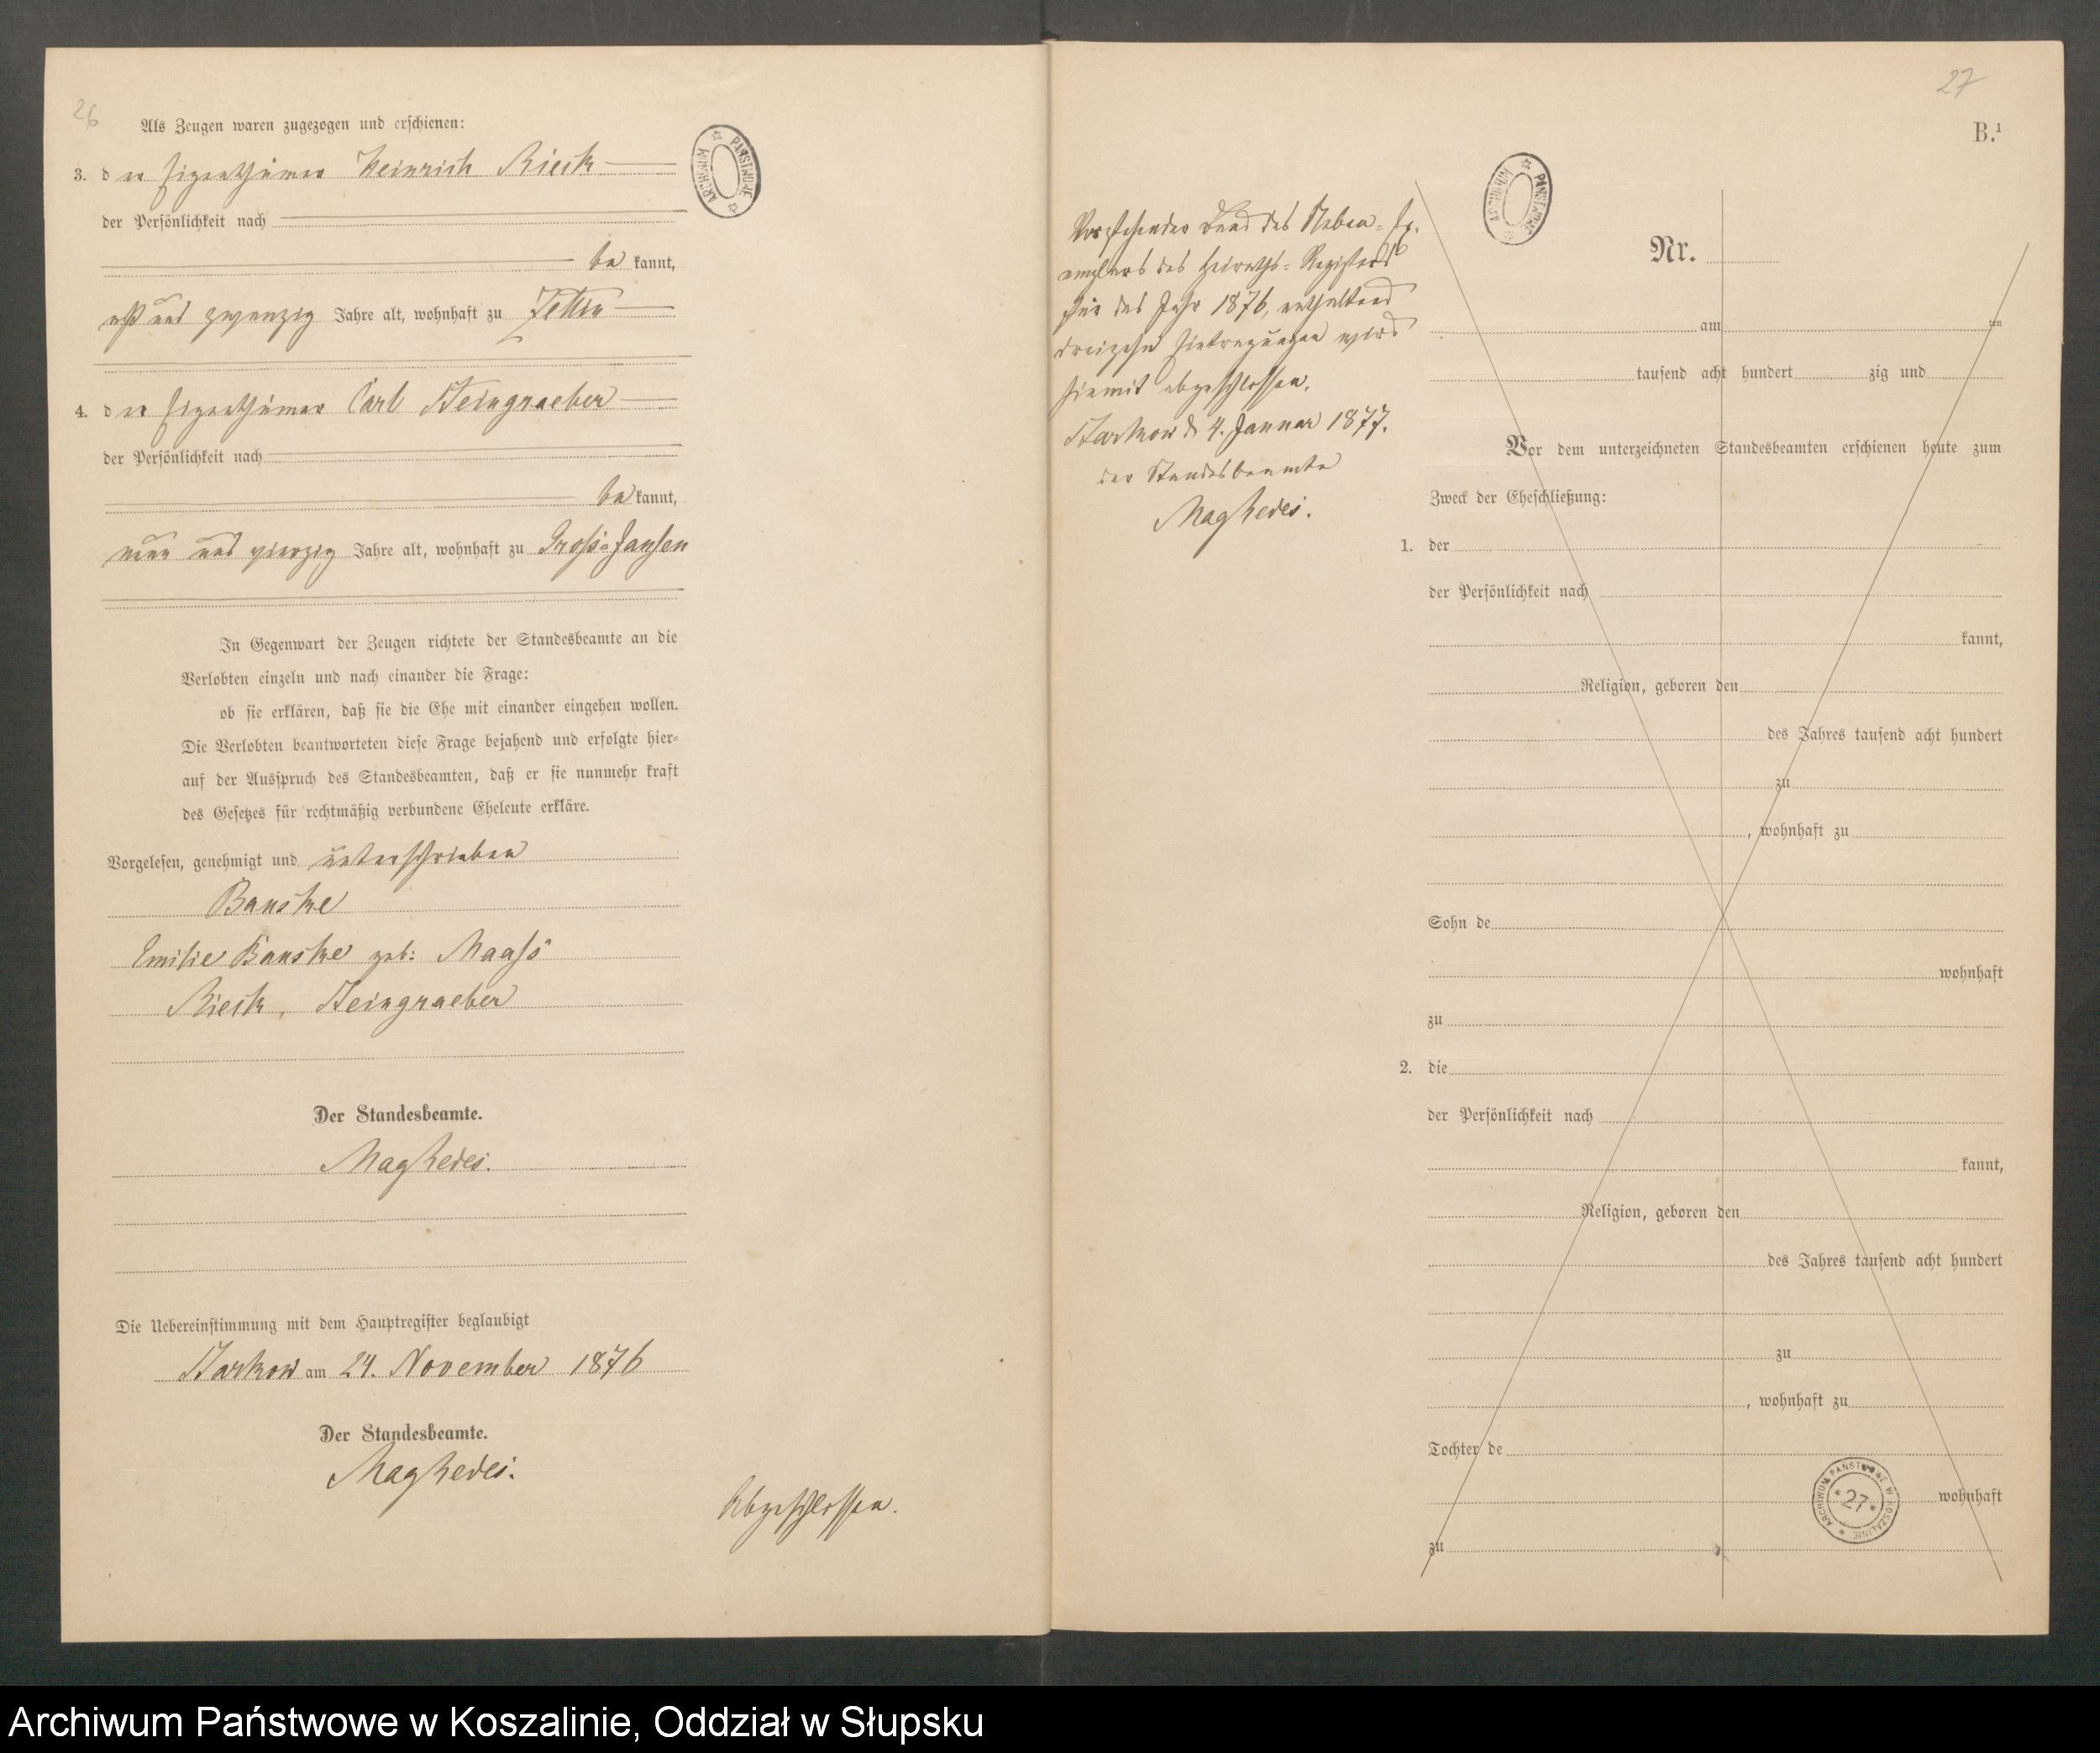 26
Als Zeugen waren zugezogen und erschienen:
3. der Eigenthümer Heinrich Rieck
der Persönlichkeit nach
be kannt,
acht und zwanzig Jahre alt, wohnhaft zu Zettin
4. der Eigenthümer Carl Steingraeber
der Persönlichkeit nach
be kannt,
neun und vierzig Jahre alt, wohnhaft zu Groß-Jansen
In Gegenwart der Zeugen richtete der Standesbeamte an die
Verlobten einzeln und nach einander die Frage:
ob sie erklären, daß sie die Ehe mit einander eingehen wollen.
Die Verlobten beantworteten diese Frage bejahend und erfolgte hier=
auf der Ausspruch des Standesbeamten, daß er sie nunmehr kraft
des Gesetzes für rechtmäßig verbundene Eheleute erkläre.
Vorgelesen, genehmigt und unterschrieben
Banske
Emilie Banske geb: Maaß
Rieck, Steingraeber
Der Standesbeamte.
Die Uebereinstimmung mit dem Hauptregister beglaubigt
Starkow am 24. November 1876
Der Standesbeamte.
Abgeschlossen.
ARCHIWUM PAŃSTWOWE
27
B.¹
ARCHIWUM PAŃSTWOWE
Vorstehender Band des Neben=Ex.
emplars des Heiraths=Registers
für das Jahr 1876, enthaltend
dreizehn Eintragungen wird
hiemit abgeschlossen.
Starkow d 4. Januar 1877.
der Standesbeamte
Nr.
am ten
tausend acht hundert zig und
Vor dem unterzeichneten Standesbeamten erschienen heute zum
Zweck der Eheschließung:
1. der
der Persönlichkeit nach
kannt,
Religion, geboren den
des Jahres tausend acht hundert
zu
, wohnhaft zu
Sohn de
wohnhaft
zu
2. die
der Persönlichkeit nach
kannt,
Religion, geboren den
des Jahres tausend acht hundert
zu
, wohnhaft zu
Tochter de
wohnhaft
zu
ARCHIWUM PAŃSTWOWE W KOSZALINIE
27
Archiwum Państwowe w Koszalinie, Oddział w Słupsku